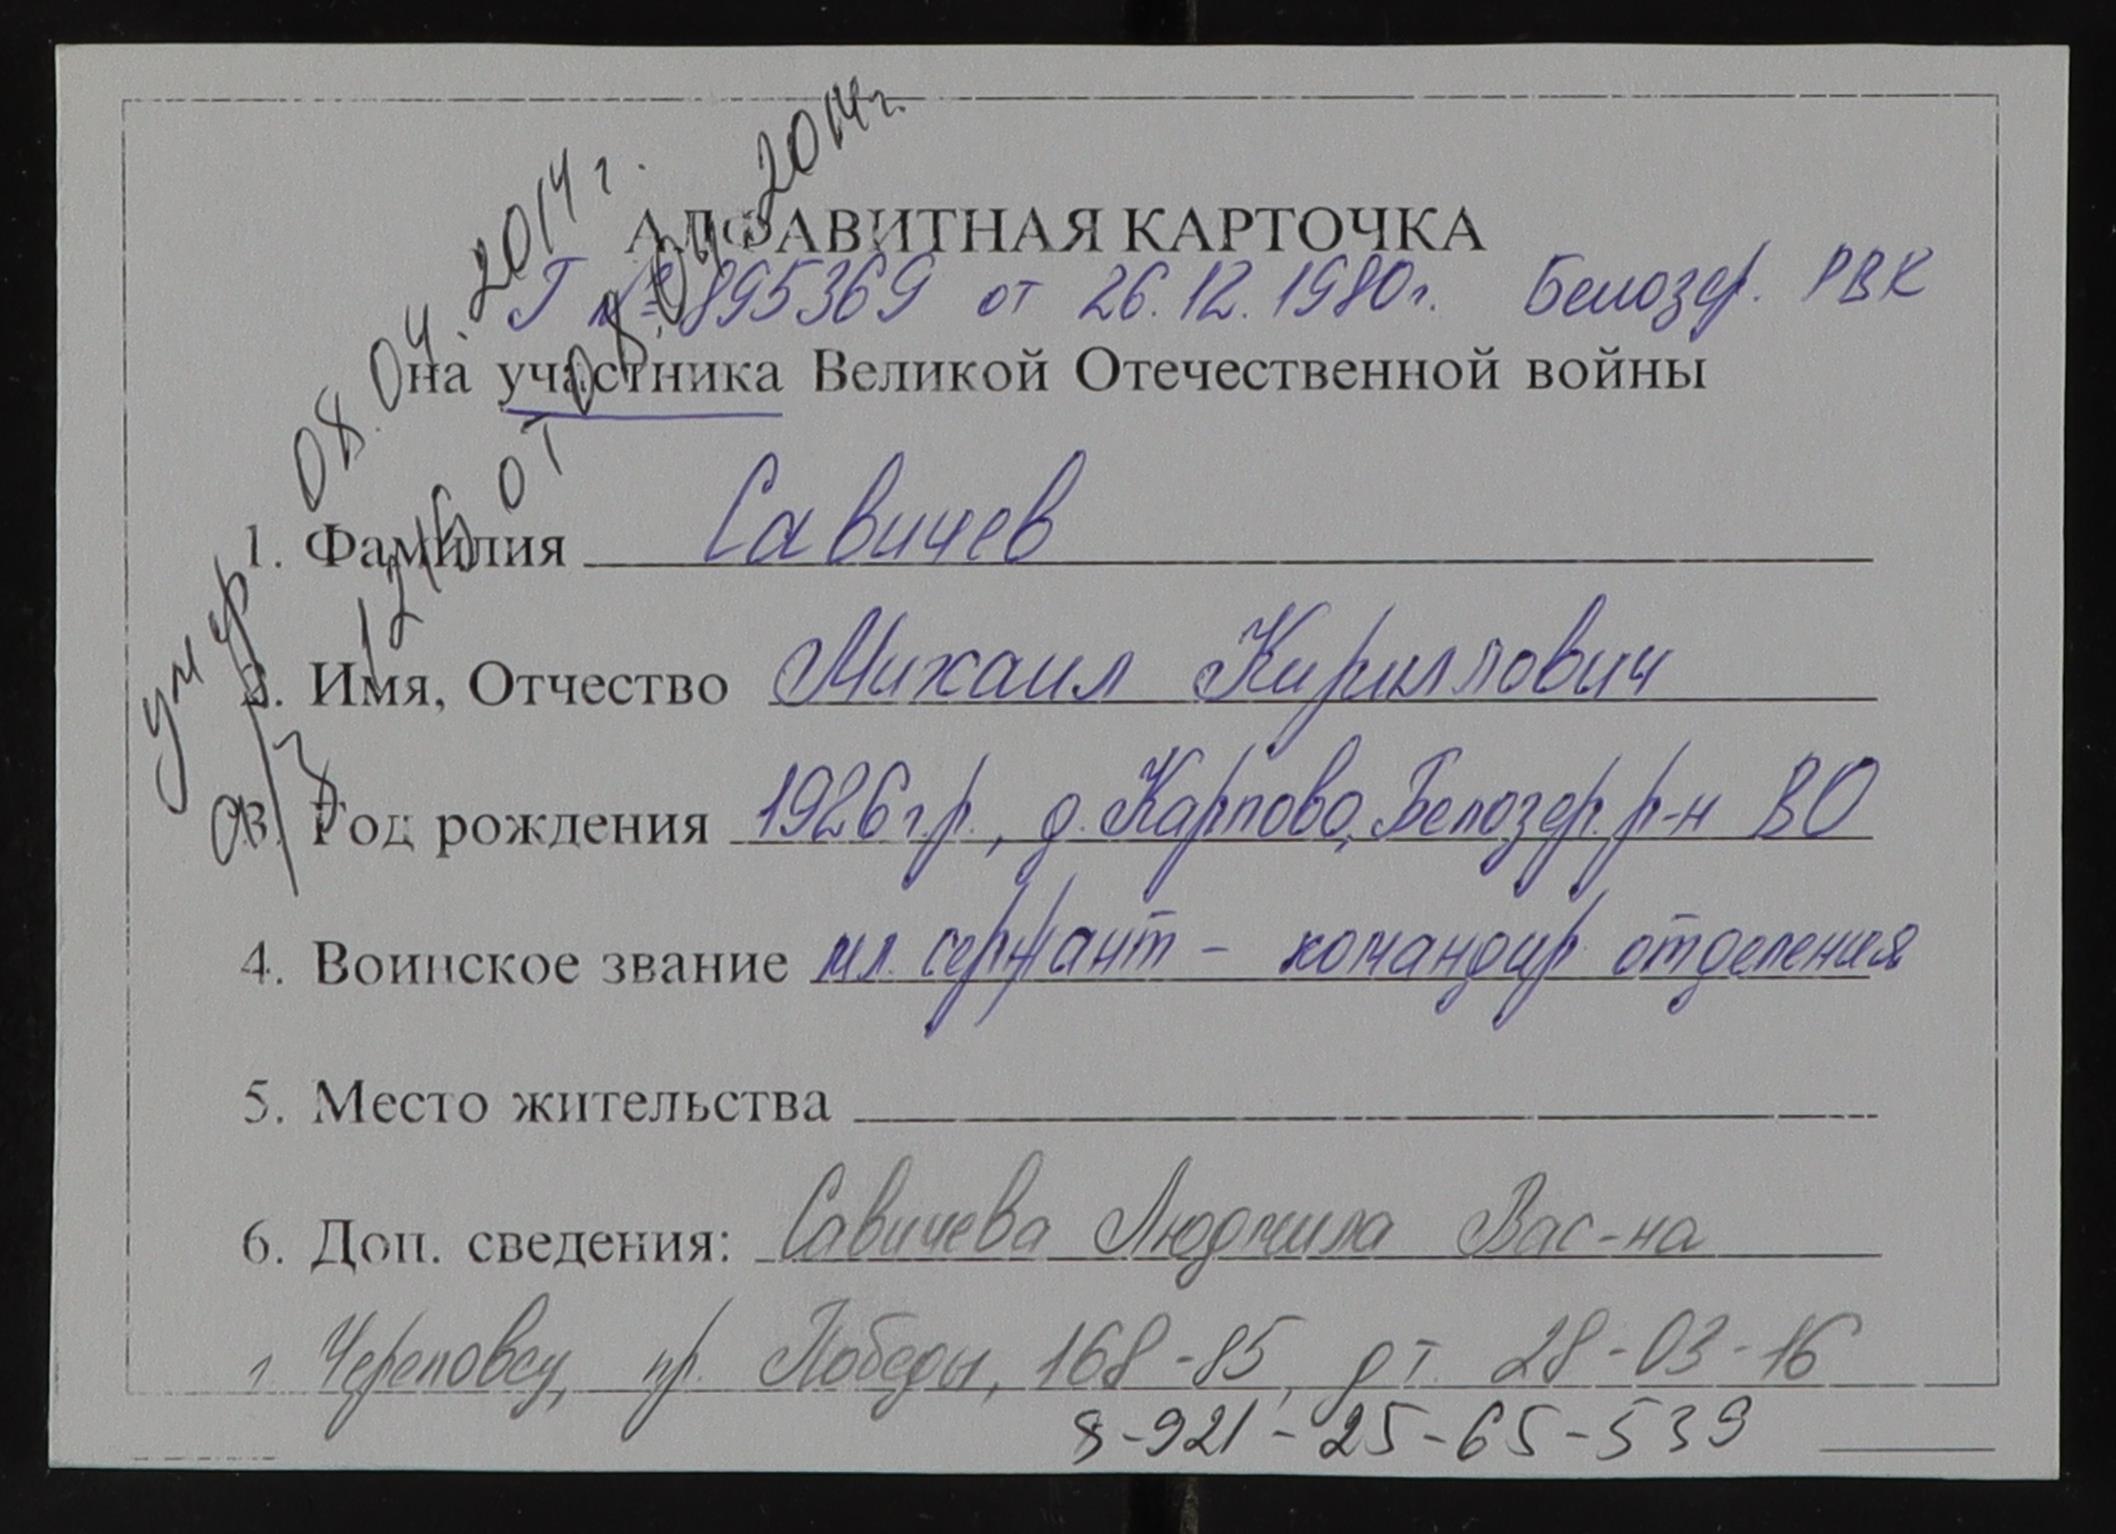 АЛФАВИТНАЯ КАРТОЧКА
Г № 895369 от 26.12.1980г. Белозер. РВК
на участника Великой Отечественной войны
1. Фамилия Савичев
2. Имя, Отчество Михаил Кириллович
3. Год рождения 1926 г.р., д. Карпово, Белозер. р-н ВО
4. Воинское звание мл. сержант - командир отделения
5. Место жительства
6. Доп. сведения: Савичева Людмила Вас-на
г. Череповец, пр. Победы, 168-85, дт. 28-03-16
8-921-25-65-539
умер 08.04.2014 г.
1216 от 08.04.2014г.